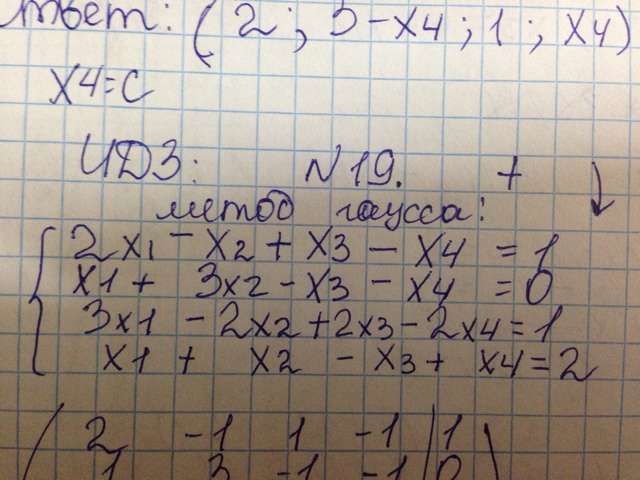 Ответ: (2; 3-x4; 1; x4)
x4=C
ИДЗ: N19. +
метод гаусса:
2x1 - x2 + x3 - x4 = 1
x1 + 3x2 - x3 - x4 = 0
3x1 - 2x2 + 2x3 - 2x4 = 1
x1 + x2 - x3 + x4 = 2
2 -1 1 -1 | 1
1 3 -1 -1 | 0